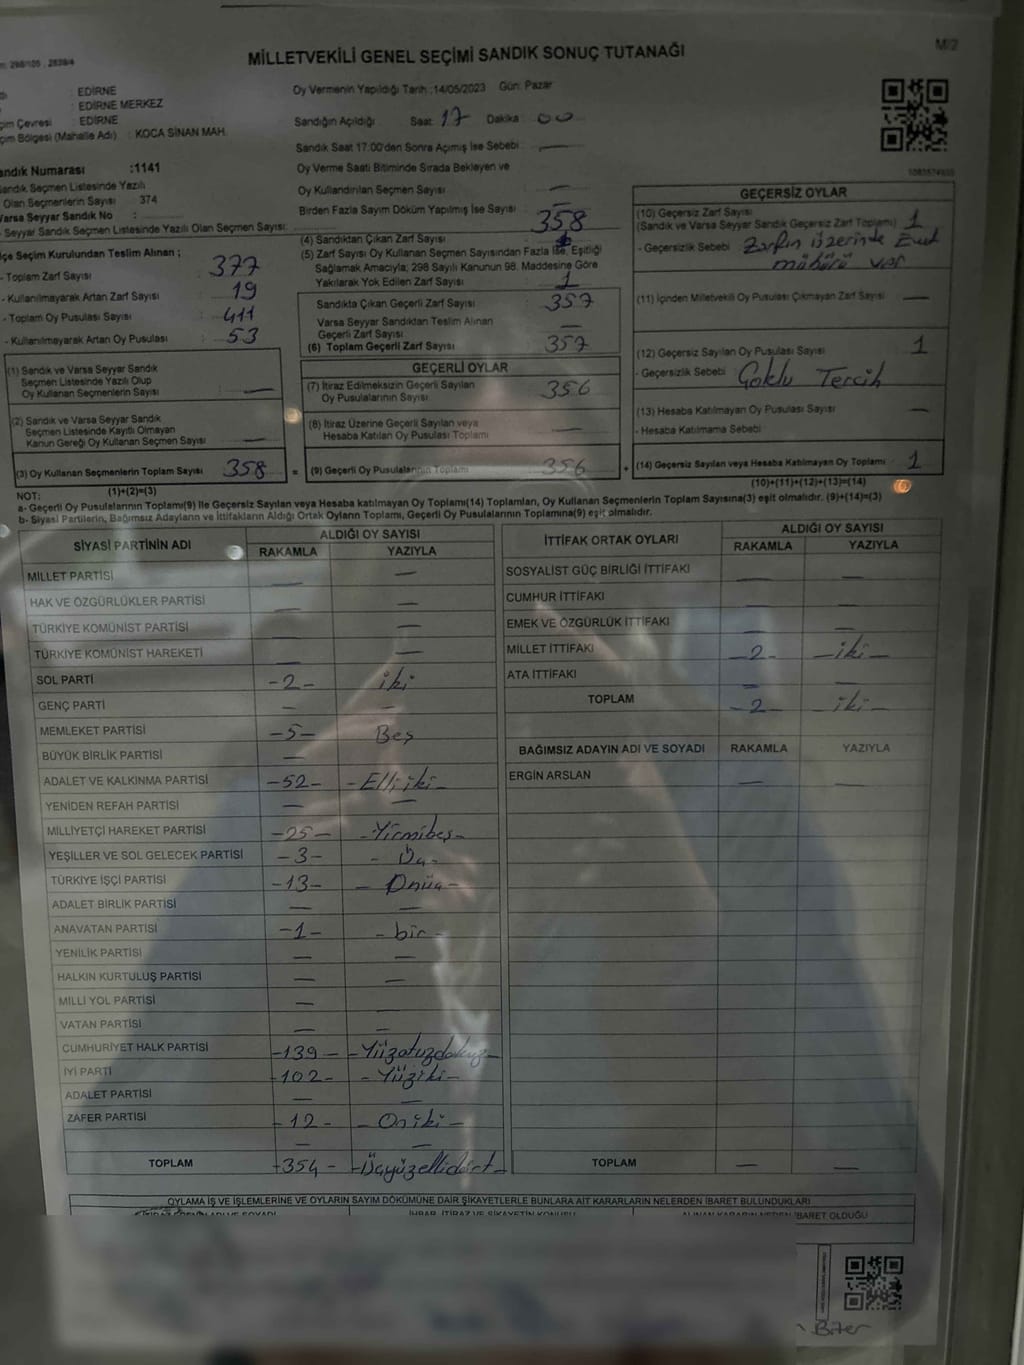 298/105 , 2839/4
MİLLETVEKİLİ GENEL SEÇİMİ SANDIK SONUÇ TUTANAĞI
M/2
: EDİRNE
: EDİRNE MERKEZ
çim Çevresi : EDİRNE
çim Bölgesi (Mahalle Adı) : KOCA SİNAN MAH.
andık Numarası :1141
andık Seçmen Listesinde Yazılı
Olan Seçmenlerin Sayısı 374
Varsa Seyyar Sandık No :
Seyyar Sandık Seçmen Listesinde Yazılı Olan Seçmen Sayısı:
lçe Seçim Kurulundan Teslim Alınan ;
- Toplam Zarf Sayısı : 377
- Kullanılmayarak Artan Zarf Sayısı : 19
- Toplam Oy Pusulası Sayısı : 411
- Kullanılmayarak Artan Oy Pusulası : 53
(1) Sandık ve Varsa Seyyar Sandık
Seçmen Listesinde Yazılı Olup
Oy Kullanan Seçmenlerin Sayısı : —
(2) Sandık ve Varsa Seyyar Sandık
Seçmen Listesinde Kayıtlı Olmayan
Kanun Gereği Oy Kullanan Seçmen Sayısı : —
(3) Oy Kullanan Seçmenlerin Toplam Sayısı : 358
(1)+(2)=(3)
Oy Vermenin Yapıldığı Tarih :14/05/2023 Gün: Pazar
Sandığın Açıldığı Saat: 17 Dakika : 00
Sandık Saat 17:00'den Sonra Açılmış İse Sebebi : —
Oy Verme Saati Bitiminde Sırada Bekleyen ve
Oy Kullandırılan Seçmen Sayısı : —
Birden Fazla Sayım Döküm Yapılmış İse Sayısı : —
(4) Sandıktan Çıkan Zarf Sayısı : 358
(5) Zarf Sayısı Oy Kullanan Seçmen Sayısından Fazla İse, Eşitliği
Sağlamak Amacıyla; 298 Sayılı Kanunun 98. Maddesine Göre
Yakılarak Yok Edilen Zarf Sayısı : 1
Sandıkta Çıkan Geçerli Zarf Sayısı : 357
Varsa Seyyar Sandıktan Teslim Alınan
Geçerli Zarf Sayısı : —
(6) Toplam Geçerli Zarf Sayısı : 357
GEÇERLİ OYLAR
(7) İtiraz Edilmeksizin Geçerli Sayılan
Oy Pusulalarının Sayısı : 356
(8) İtiraz Üzerine Geçerli Sayılan veya
Hesaba Katılan Oy Pusulası Toplamı : —
= (9) Geçerli Oy Pusulalarının Toplamı : 356
GEÇERSİZ OYLAR
(10) Geçersiz Zarf Sayısı
(Sandık ve Varsa Seyyar Sandık Geçersiz Zarf Toplamı) : 1
- Geçersizlik Sebebi : Zarfın üzerinde Evet
mühürü var
(11) İçinden Milletvekili Oy Pusulası Çıkmayan Zarf Sayısı : —
(12) Geçersiz Sayılan Oy Pusulası Sayısı : 1
- Geçersizlik Sebebi : Çoklu Tercih
(13) Hesaba Katılmayan Oy Pusulası Sayısı : —
- Hesaba Katılmama Sebebi :
+ (14) Geçersiz Sayılan veya Hesaba Katılmayan Oy Toplamı : 1
(10)+(11)+(12)+(13)=(14)
NOT:
a- Geçerli Oy Pusulalarının Toplamı(9) ile Geçersiz Sayılan veya Hesaba katılmayan Oy Toplamı(14) Toplamları, Oy Kullanan Seçmenlerin Toplam Sayısına(3) eşit olmalıdır. (9)+(14)=(3)
b- Siyasi Partilerin, Bağımsız Adayların ve İttifakların Aldığı Ortak Oyların Toplamı, Geçerli Oy Pusulalarının Toplamına(9) eşit olmalıdır.
SİYASİ PARTİNİN ADI ALDIĞI OY SAYISI
RAKAMLA YAZIYLA
MİLLET PARTİSİ — —
HAK VE ÖZGÜRLÜKLER PARTİSİ — —
TÜRKİYE KOMÜNİST PARTİSİ — —
TÜRKİYE KOMÜNİST HAREKETİ — —
SOL PARTİ -2- iki
GENÇ PARTİ — —
MEMLEKET PARTİSİ -5- Beş
BÜYÜK BİRLİK PARTİSİ —
ADALET VE KALKINMA PARTİSİ -52- -Elli iki-
YENİDEN REFAH PARTİSİ — —
MİLLİYETÇİ HAREKET PARTİSİ -25- -Yirmibeş-
YEŞİLLER VE SOL GELECEK PARTİSİ -3- - Üç -
TÜRKİYE İŞÇİ PARTİSİ -13- - Onüç -
ADALET BİRLİK PARTİSİ — —
ANAVATAN PARTİSİ -1- - bir -
YENİLİK PARTİSİ — —
HALKIN KURTULUŞ PARTİSİ — —
MİLLİ YOL PARTİSİ —
VATAN PARTİSİ — —
CUMHURİYET HALK PARTİSİ -139- -Yüzotuzdokuz-
İYİ PARTİ -102- - Yüziki -
ADALET PARTİSİ — —
ZAFER PARTİSİ -12- - Oniki -
— —
TOPLAM -354- -Üçyüzellidört-
İTTİFAK ORTAK OYLARI ALDIĞI OY SAYISI
RAKAMLA YAZIYLA
SOSYALİST GÜÇ BİRLİĞİ İTTİFAKI — —
CUMHUR İTTİFAKI — —
EMEK VE ÖZGÜRLÜK İTTİFAKI — —
MİLLET İTTİFAKI -2- -iki-
ATA İTTİFAKI — —
TOPLAM -2- -iki-
BAĞIMSIZ ADAYIN ADI VE SOYADI RAKAMLA YAZIYLA
ERGİN ARSLAN — —
TOPLAM — —
OYLAMA İŞ VE İŞLEMLERİNE VE OYLARIN SAYIM DÖKÜMÜNE DAİR ŞİKAYETLERLE BUNLARA AİT KARARLARIN NELERDEN İBARET BULUNDUKLARI
İHBAR, İTİRAZ VE ŞİKAYETİN KONUSU
ALINAN KARARIN NEDEN İBARET OLDUĞU
Biter